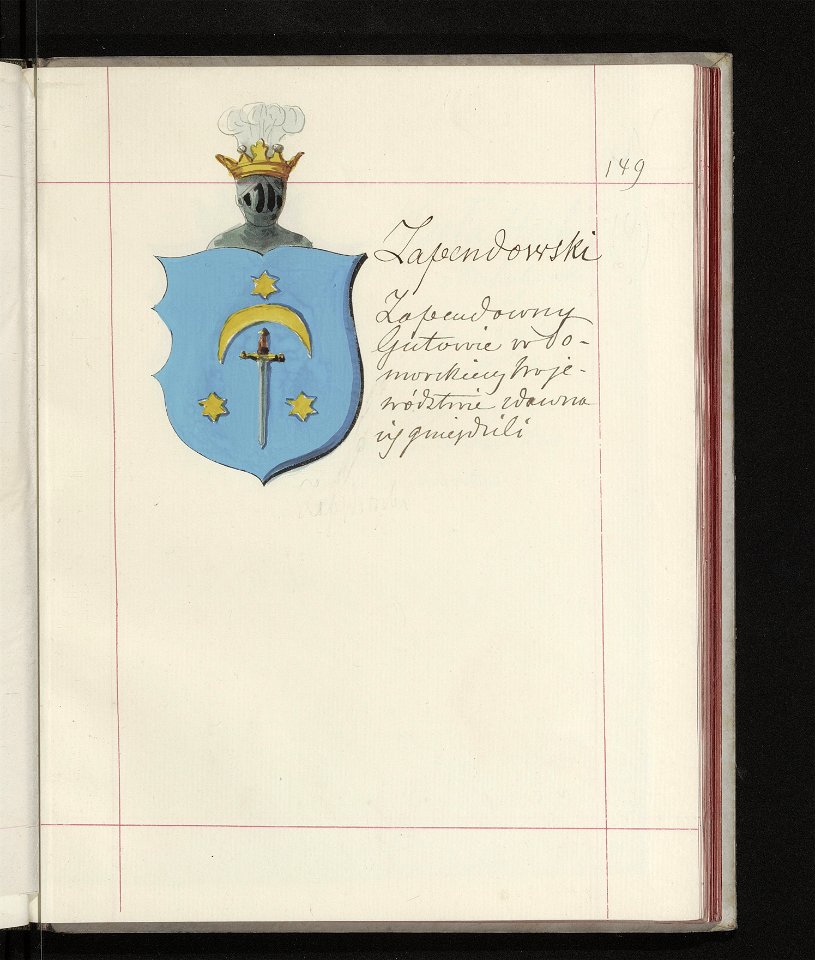 149
Zapendowski
Zapendowny
Gutowie w Po-
morskiey Woje-
wództwie zdawna
się gnieździli